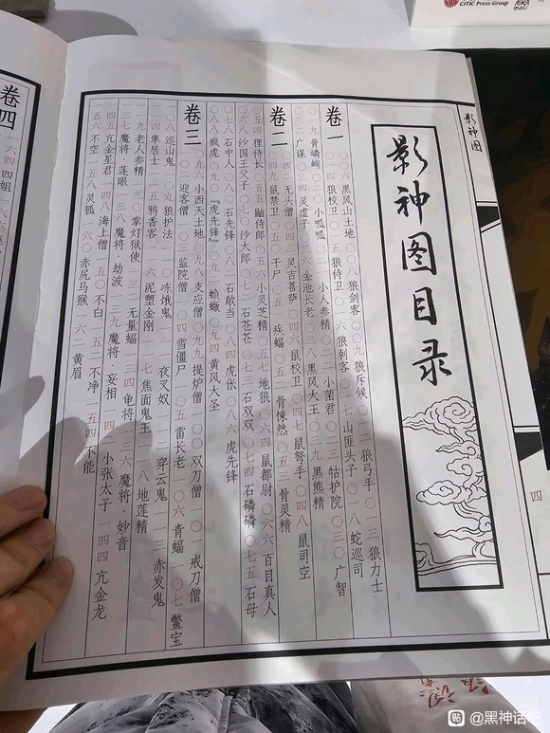 CITIC Press Group
影神图
四
影神图目录
卷一
〇〇六 黑风山土地 〇〇八 狼剑客 〇〇九 狼斥候 〇一二 狼弓手 〇一三 狼力士
〇一四 狼校卫 〇一五 狼侍卫 〇一六 狼刺客 〇一七 山匪头子 〇一八 蛇巡司
〇一九 骨嶙峋 〇二〇 小呱呱 〇二一 小人参精 〇二二 小菌君 〇二三 牯护院 〇三〇 广智
〇三二 广谋 〇三四 灵虚子 〇三六 金池长老 〇三八 黑风大王 〇三九 黑熊精
卷二
〇四四 无头僧 〇四五 灵吉菩萨 〇四六 鼠校卫 〇四七 鼠弩手 〇四八 鼠司空
〇四九 鼠禁卫 〇五〇 干尸 〇五一 疾蝠 〇五二 骨悚然 〇五三 骨灵精
〇五四 狸侍长 〇五五 鼬侍郎 〇五六 小灵芝精 〇五七 地狼 〇六四 鼠都尉 〇六六 百目真人
〇六八 沙国王父子 〇七〇 沙大郎 〇七二 石苍苍 〇七三 石双双 〇七四 石磷磷 〇七五 石母
〇七八 石中人 〇八〇 石先锋 〇八二 石敢当 〇八四 虎伥 〇八六 虎先锋
〇八八 疯虎 〇九〇 『虎先锋』 〇九二 蝜蝂 〇九四 黄风大圣
卷三
〇九六 小西天土地 〇九八 支应僧 〇九九 提炉僧 一〇〇 双刀僧 一〇一 戒刀僧
一〇二 迎客僧 一〇三 监院僧 一〇四 雪僵尸 一〇五 雷长老 一〇六 青蝠 一〇七 鳖宝
一〇八 巡山鬼 一〇九 狼护法 一一〇 冻饿鬼 一一一 夜叉奴 一一二 穿云鬼 一一三 赤发鬼
一一四 隼居士 一一五 鸦香客 一一六 泥塑金刚 一一七 焦面鬼王 一一八 地莲精
一一九 老人参精 一三〇 掌灯狱使 一三一 无量蝠 一三四 龟将 一三六 魔将·妙音
一三七 魔将·莲眼 一三八 魔将·劫波 一三九 魔将·妄相 一四〇 小张太子 一四四 亢金龙
一四五 亢金星君 一四八 海上僧 一五〇 不白 一五二 不净 一五四 不能
一五六 不空 一五八 灵狐 一六〇 赤尻马猴 一六二 黄眉
卷四
一六四 四姐
@黑神话吧